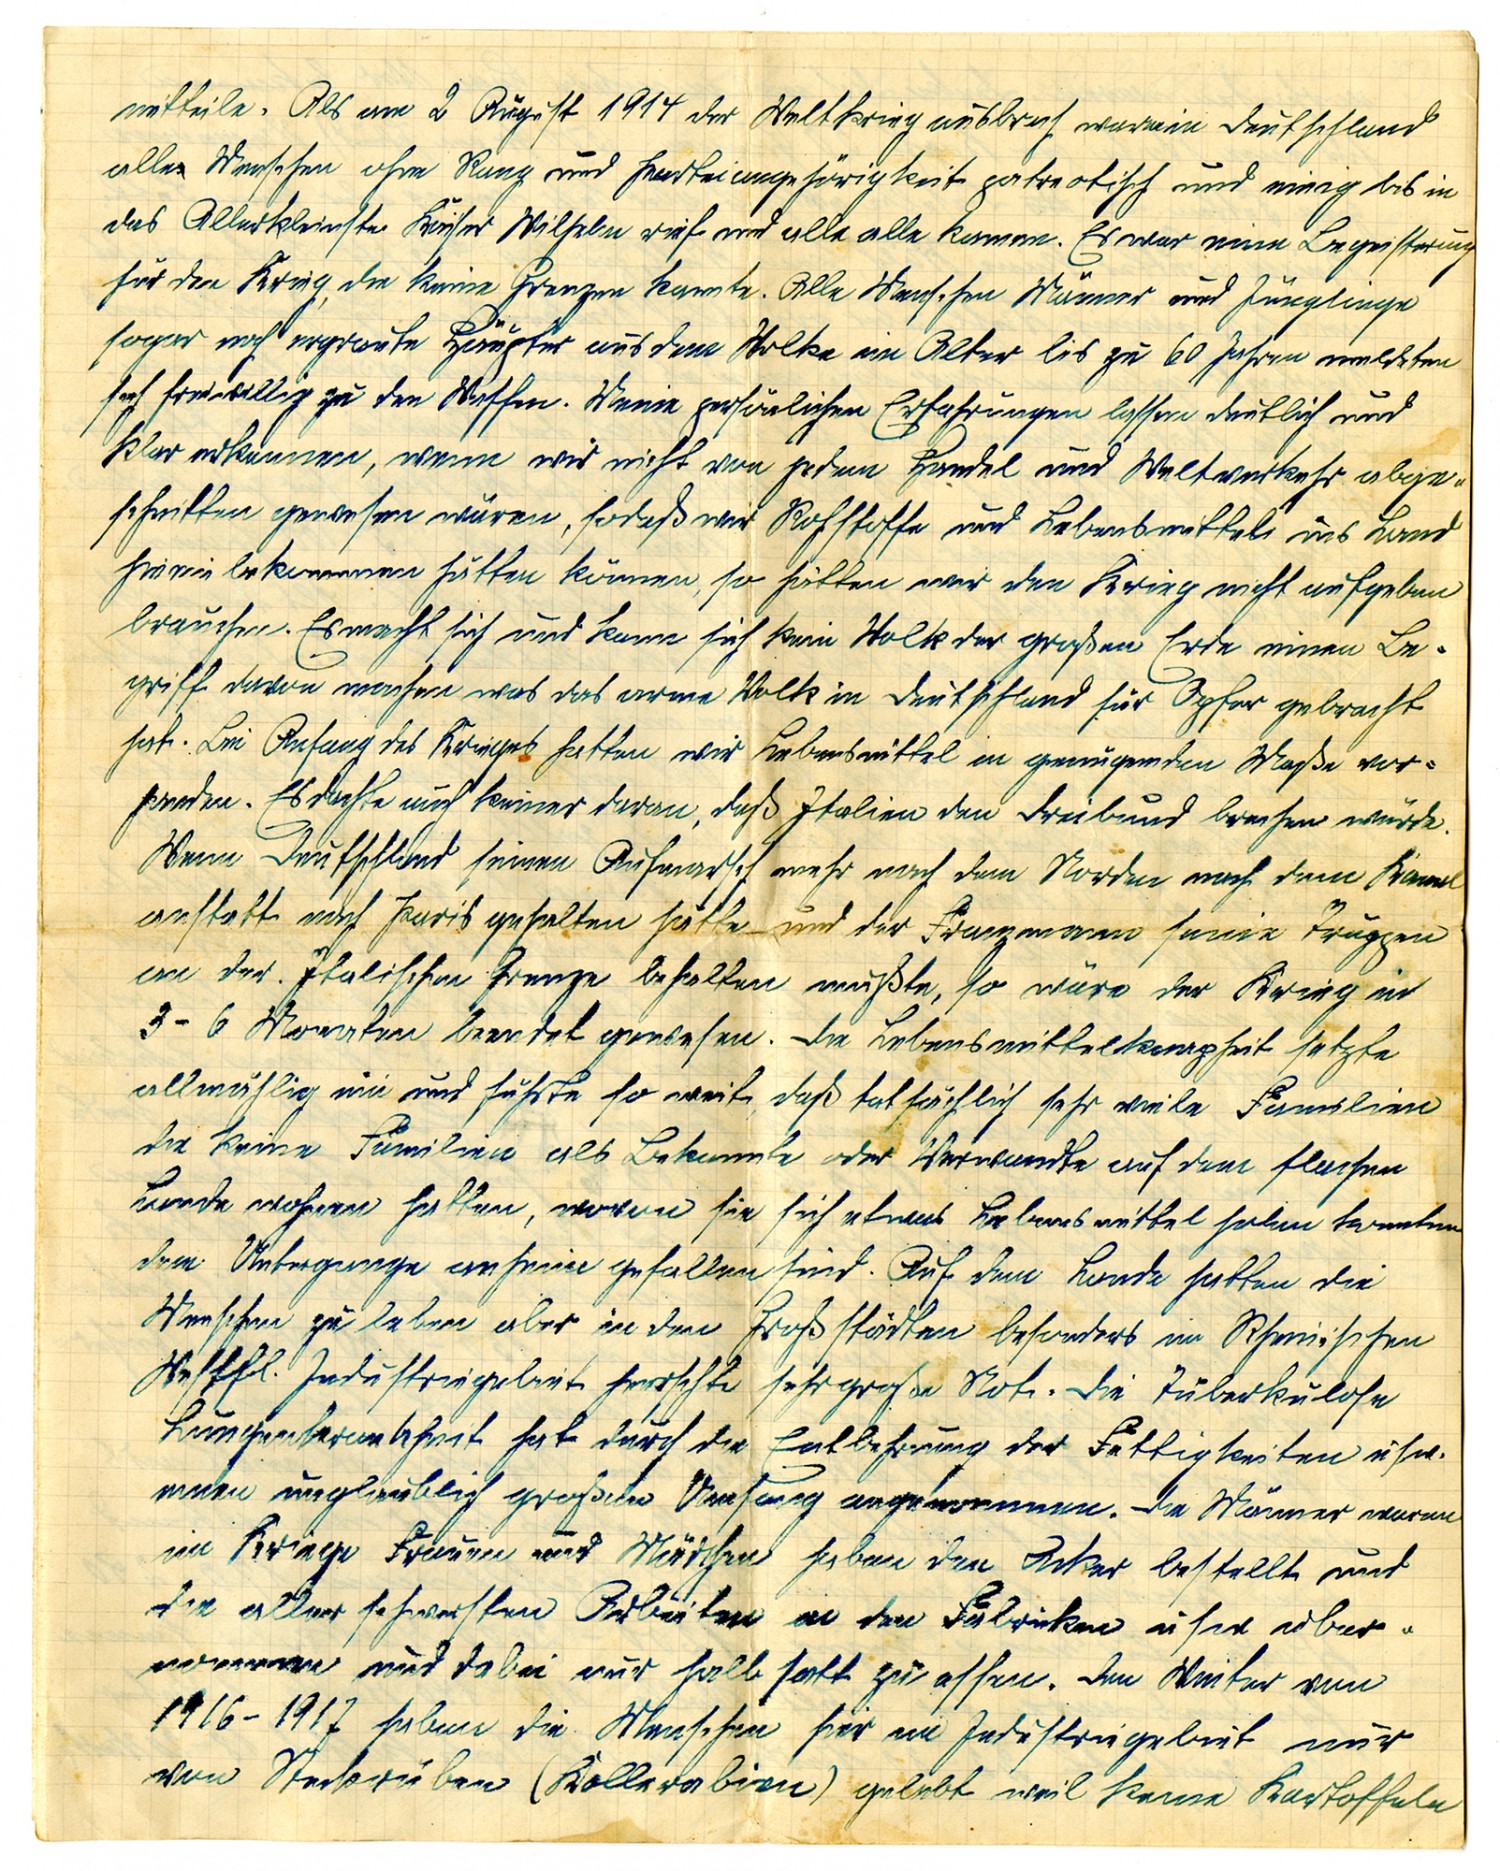 mitteile. Als am 2 August 1914 der Weltkrieg ausbrach waren in Deutschland
alle Menschen ohne Rang und Parteiangehörigkeit patreotisch und einig bis in
das Allerkleinste. Kaiser Wilhelm rief und alle alle kamen. Es war eine Begeisterung
für den Krieg, die keine Grenzen kannte. Alle Menschen Männer und Jünglinge
sogar noch ergraute Häupter aus dem Volke im Alter bis zu 60 Jahren meldeten
sich freiwillig zu den Waffen. Meine persönlichen Erfahrungen lassen deutlich und
klar erkennen, wenn wir nicht von jedem Handel und Weltverkehr abge-
schnitten gewesen wären, sodaß wir Rohstoffe und Lebensmittel ins Land
hinein bekommen hätten können, so hätten wir den Krieg nicht aufgeben
brauchen. Es macht sich und kann sich kein Volk der großen Erde einen Be-
griff davon machen was das arme Volk in Deutschland für Opfer gebracht
hat. Bei Anfang des Krieges hatten wir Lebensmittel in genügendem Maße vor-
handen. Es dachte auch keiner daran, daß Italien den Dreibund brechen würde.
Wenn Deutschland seinen Aufmarsch mehr nach dem Norden nach dem Kanal
anstatt nach Paris gehalten hätte und der Franzmann seine Truppen
an der Italischen Grenze behalten mußte, so wäre der Krieg in
3-6 Monaten beendet gewesen. Die Lebensmittelknapheit setzte
allmählig ein und führte so weit, daß tatsächlich sehr viele Familien
die keine Familien als Bekannte oder Verwandte auf dem flachen
Lande wohnen hatten, wovon sie sich etwas Lebensmittel holen konnten
dem Untergange anheim gefallen sind. Auf dem Lande hatten die
Menschen zu leben aber in den Großstädten besonders im Rheinischen
Westfl. Industriegebiet herrschte sehr große Not. Die Tuberkulose
Lungenkrankheit hat durch die Entbehrung der Fettigkeiten usw.
einen unglaublich großen Umfang angenommen. Die Männer waren
im Kriege Frauen und Mädchen haben den Acker bestellt und
die aller schwersten Arbeiten in den Fabriken usw über-
nommen und dabei nur halb satt zu essen. Den Winter von
1916-1917 haben die Menschen hier im Industriegebiet nur
von Steckrüben (Kollerabien) gelebt weil keine Kartoffeln